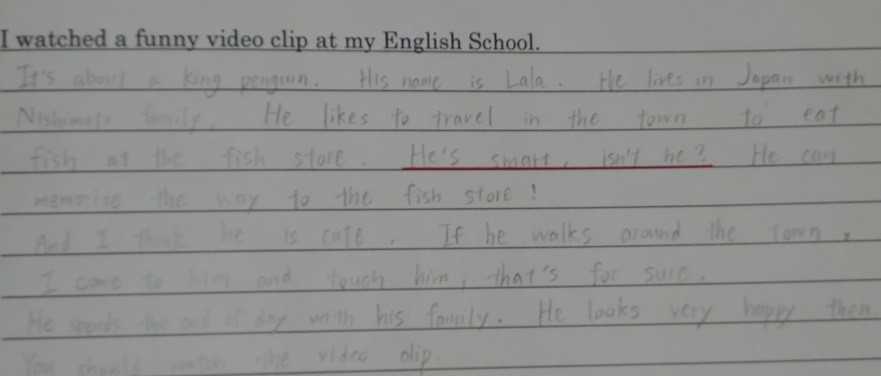 I watched a funny video clip at my English School.
It's about a king penguin. His name is Lala. He lives in Japan with
Nishimoto family. He likes to travel in the town to eat
fish at the fish store. He's smart, isn't he? He can
memorize the way to the fish store!
And I think he is cute. If he walks around the town,
I come to him and touch him, that's for sure.
He spends the end of day with his family. He looks very happy then.
You should watch the video clip.